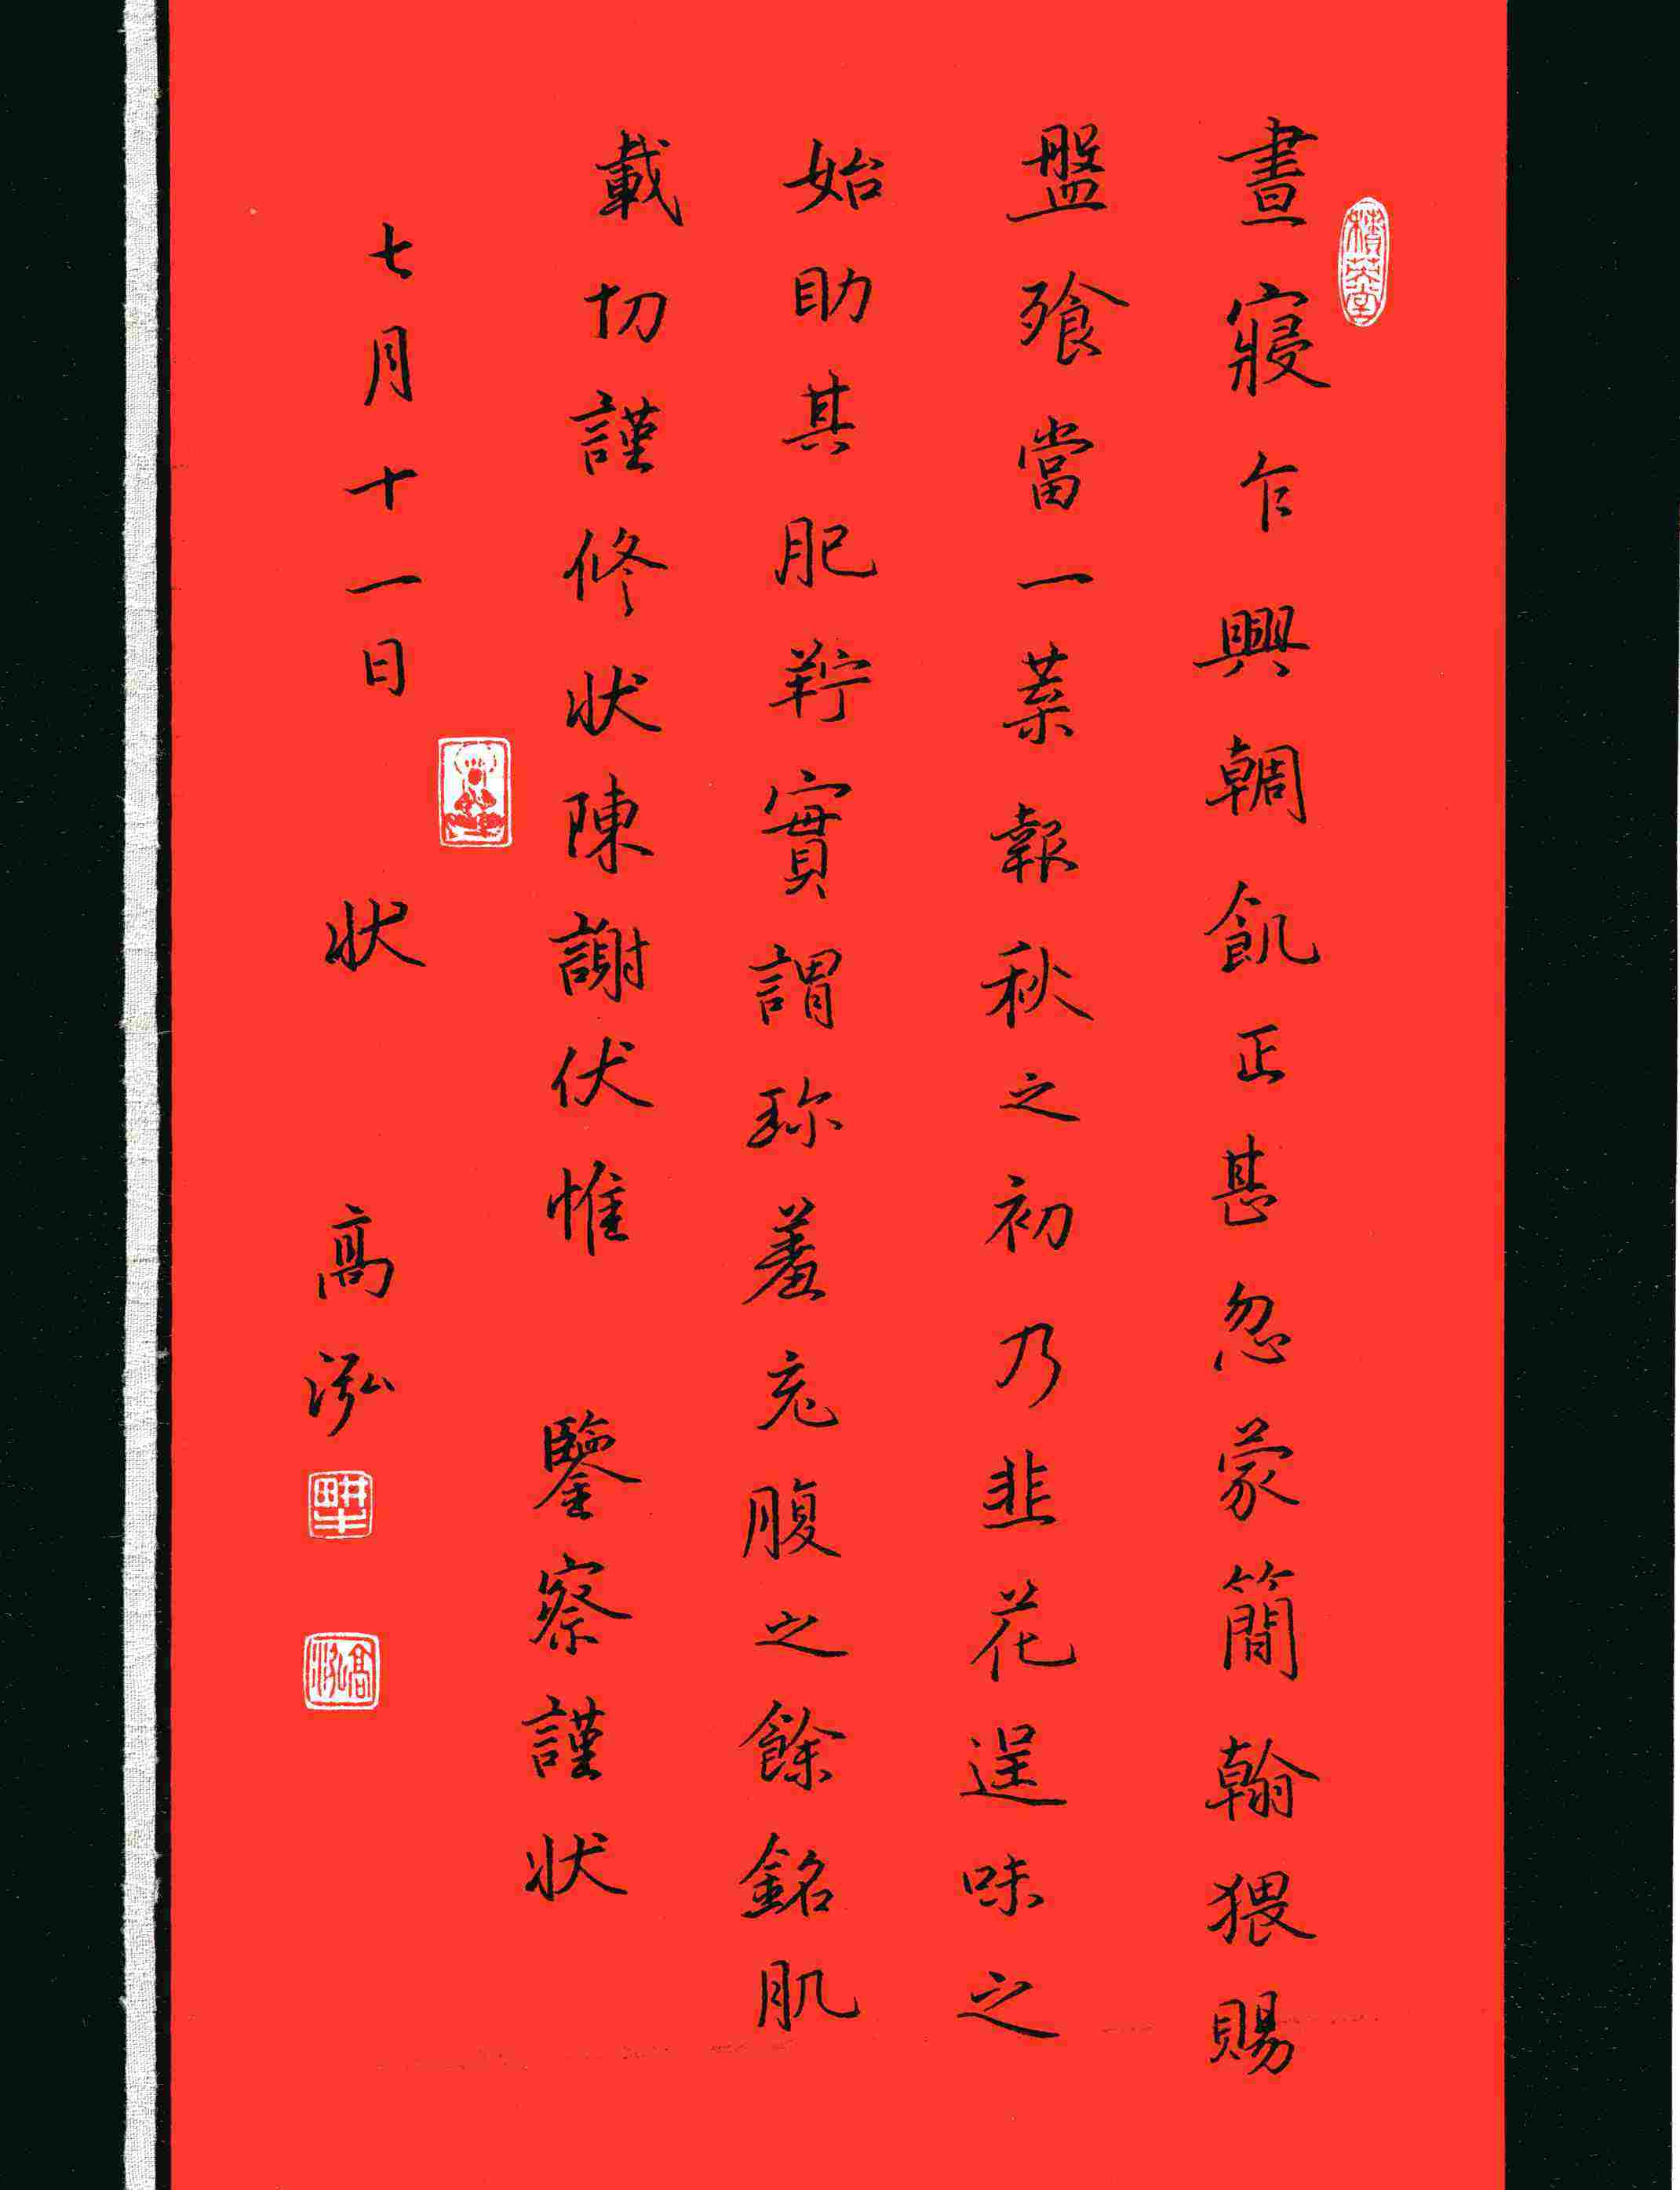 晝寢乍興輖飢正甚忽蒙簡翰猥賜
盤飱當一葉報秋之初乃韭花逞味之
始助其肥羜實謂珎羞充腹之餘銘肌
載切謹修狀陳謝伏惟 鑒察謹狀
七月十一日 狀 高泓
高泓